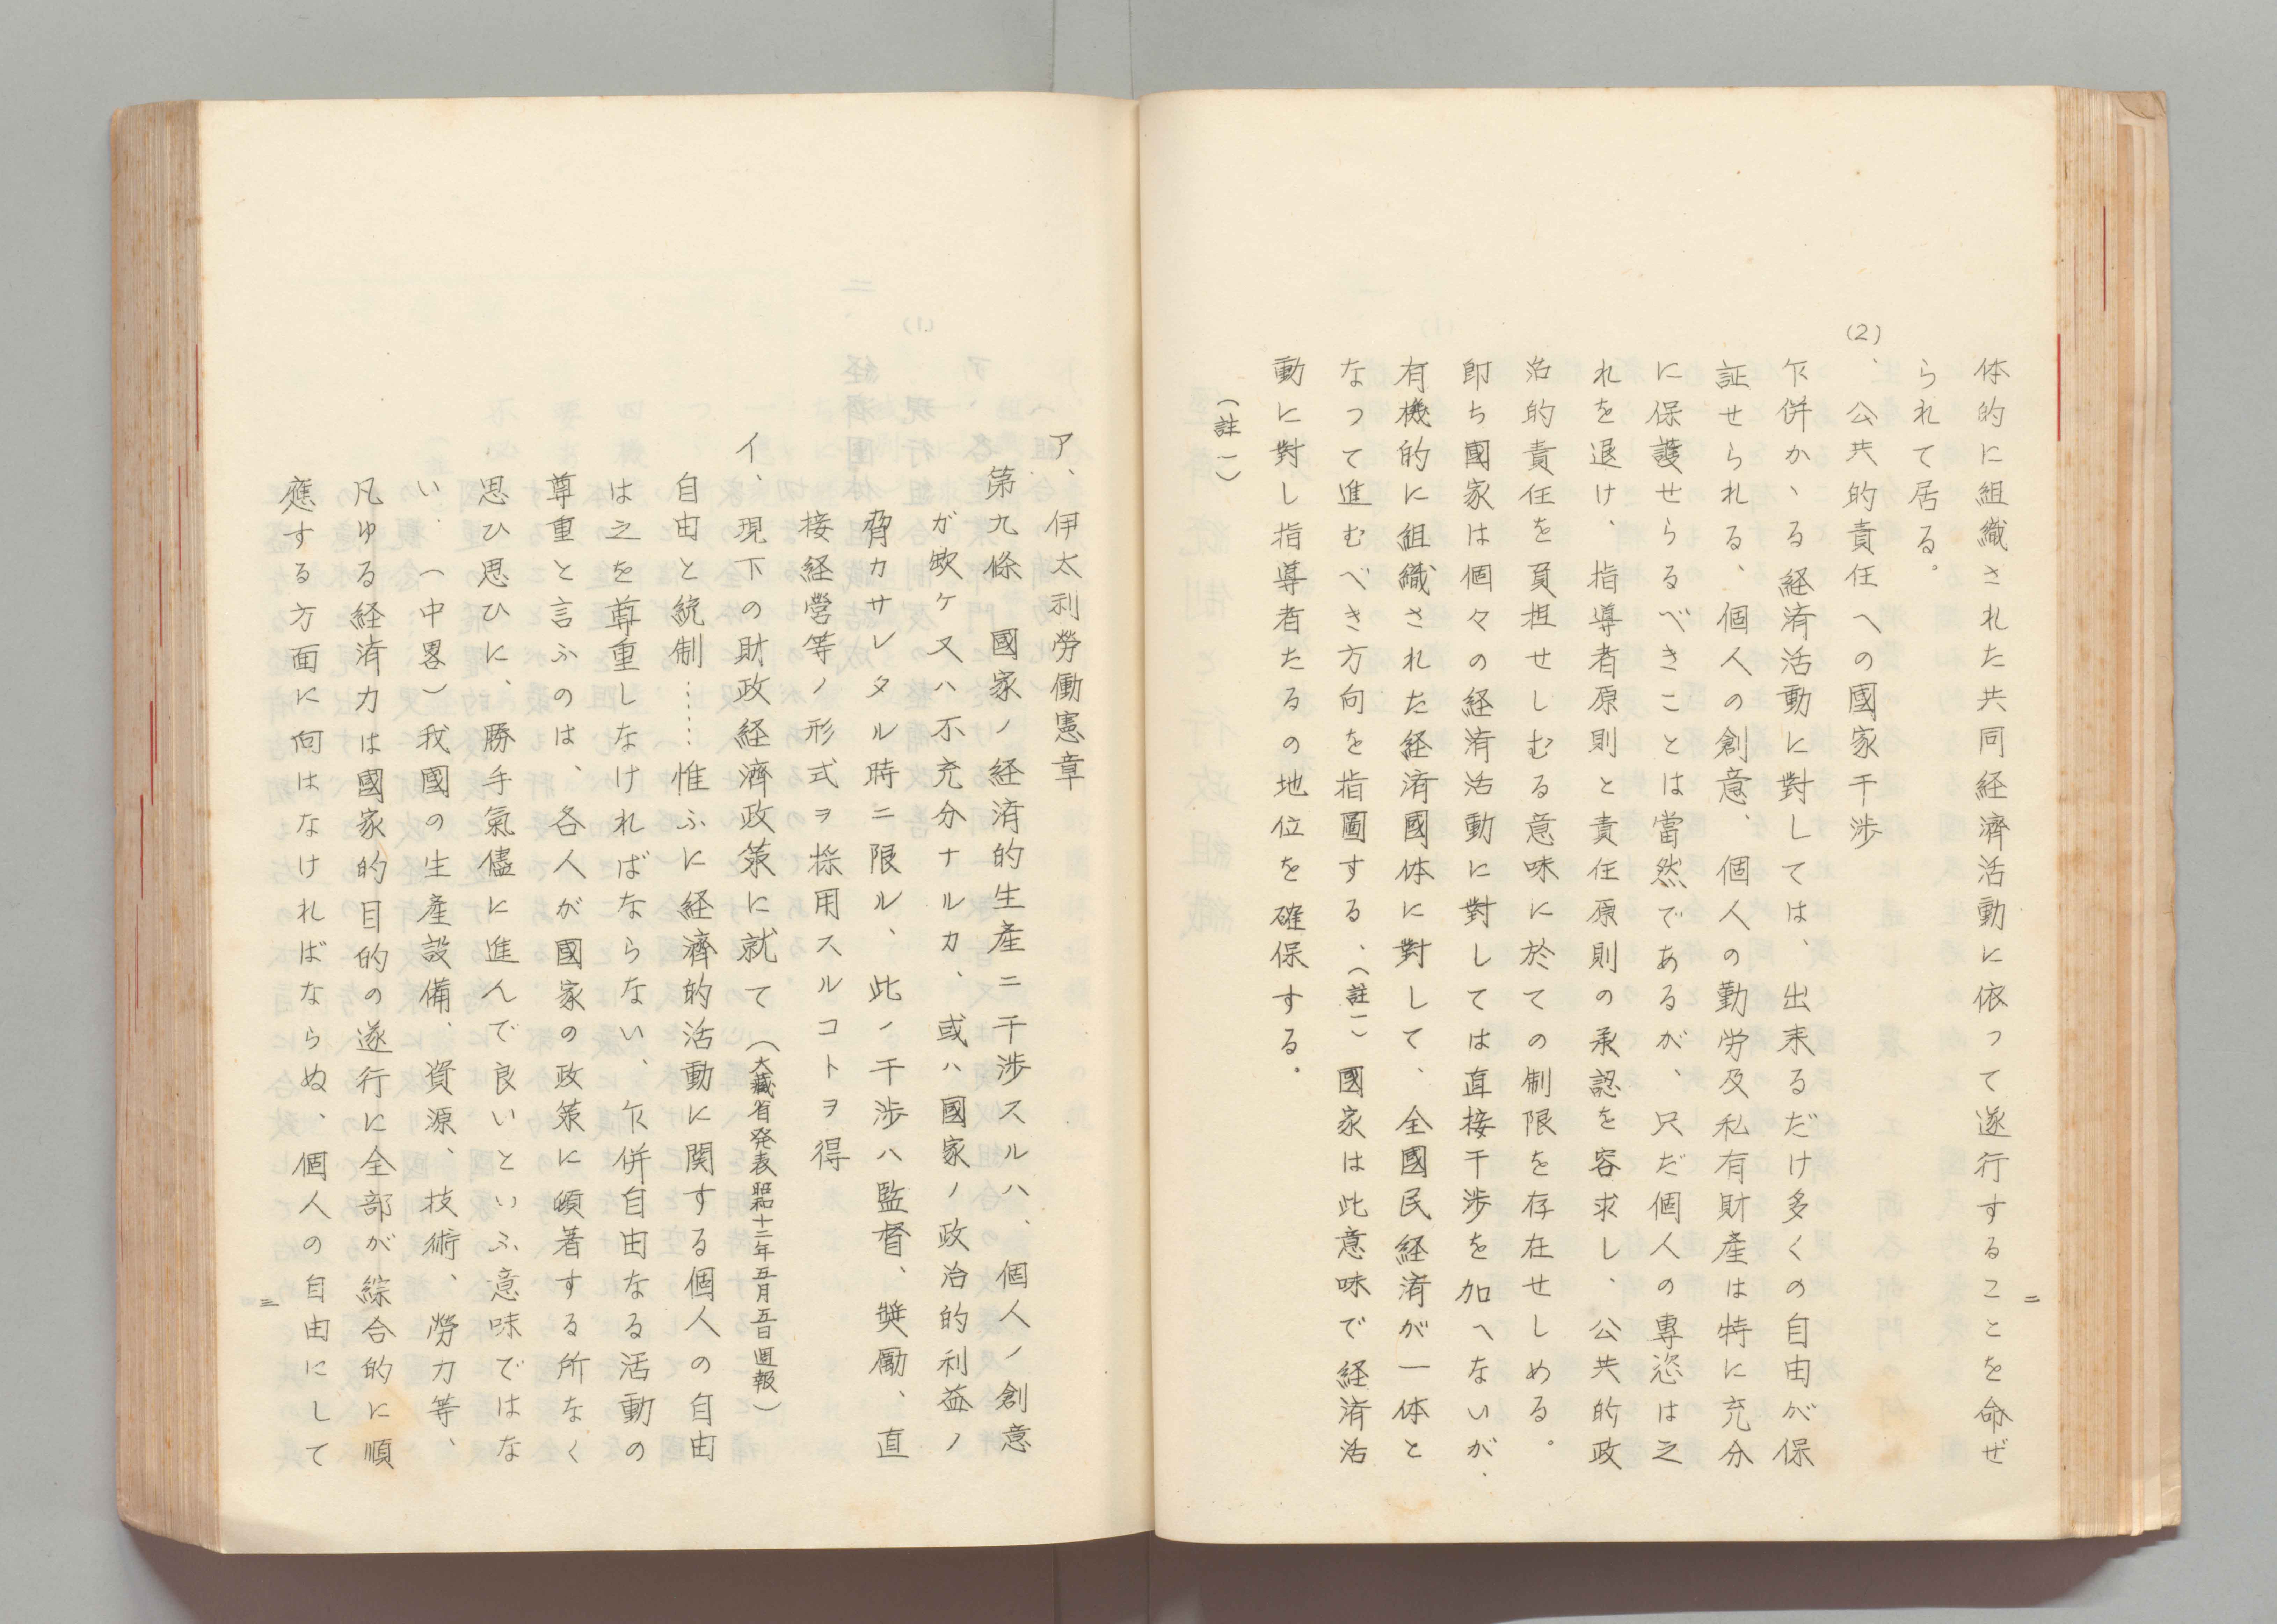 二
体的に組織された共同経済活動に依って遂行することを命ぜ
られて居る。
(2)、公共的責任への國家干渉
乍併かゝる経済活動に對しては、出来るだけ多くの自由が保
証せられる、個人の創意、個人の勤労及私有財産は特に充分
に保護せらるべきことは當然であるが、只だ個人の專恣は之
れを退け、指導者原則と責任原則の承認を容求し、公共的政
治的責任を負担せしむる意味に於ての制限を存在せしめる。
即ち國家は個々の経済活動に對しては直接干渉を加へないが、
有機的に組織された経済團体に對して、全國民経済が一体と
なって進むべき方向を指圖する、(註一)國家は此意味で経済活
動に對し指導者たるの地位を確保する。
(註一)
ア、伊太利勞働憲章
第九條 國家ノ経済的生產ニ干渉スルハ、個人ノ創意
が欤ケ又ハ不充分ナルカ、或ハ國家ノ政治的利益ノ
脅カサレタル時ニ限ル、此ノ干渉ハ監督、奬勵、直
接経営等ノ形式ヲ採用スルコトヲ得
イ、現下の財政経濟政策に就て(大藏省発表昭和十三年五月五日週報)
自由と統制……惟ふに経濟的活動に関する個人の自由
は之を尊重しなければならない、乍併自由なる活動の
尊重と言ふのは、各人が國家の政策に傾著する所なく
思ひ思ひに、勝手氣儘に進んで良いといふ意味ではな
い、(中畧)我國の生產設備、資源、技術、勞力等、
凡ゆる経済力は國家的目的の遂行に全部が綜合的に順
應する方面に向はなければならぬ、個人の自由にして
三